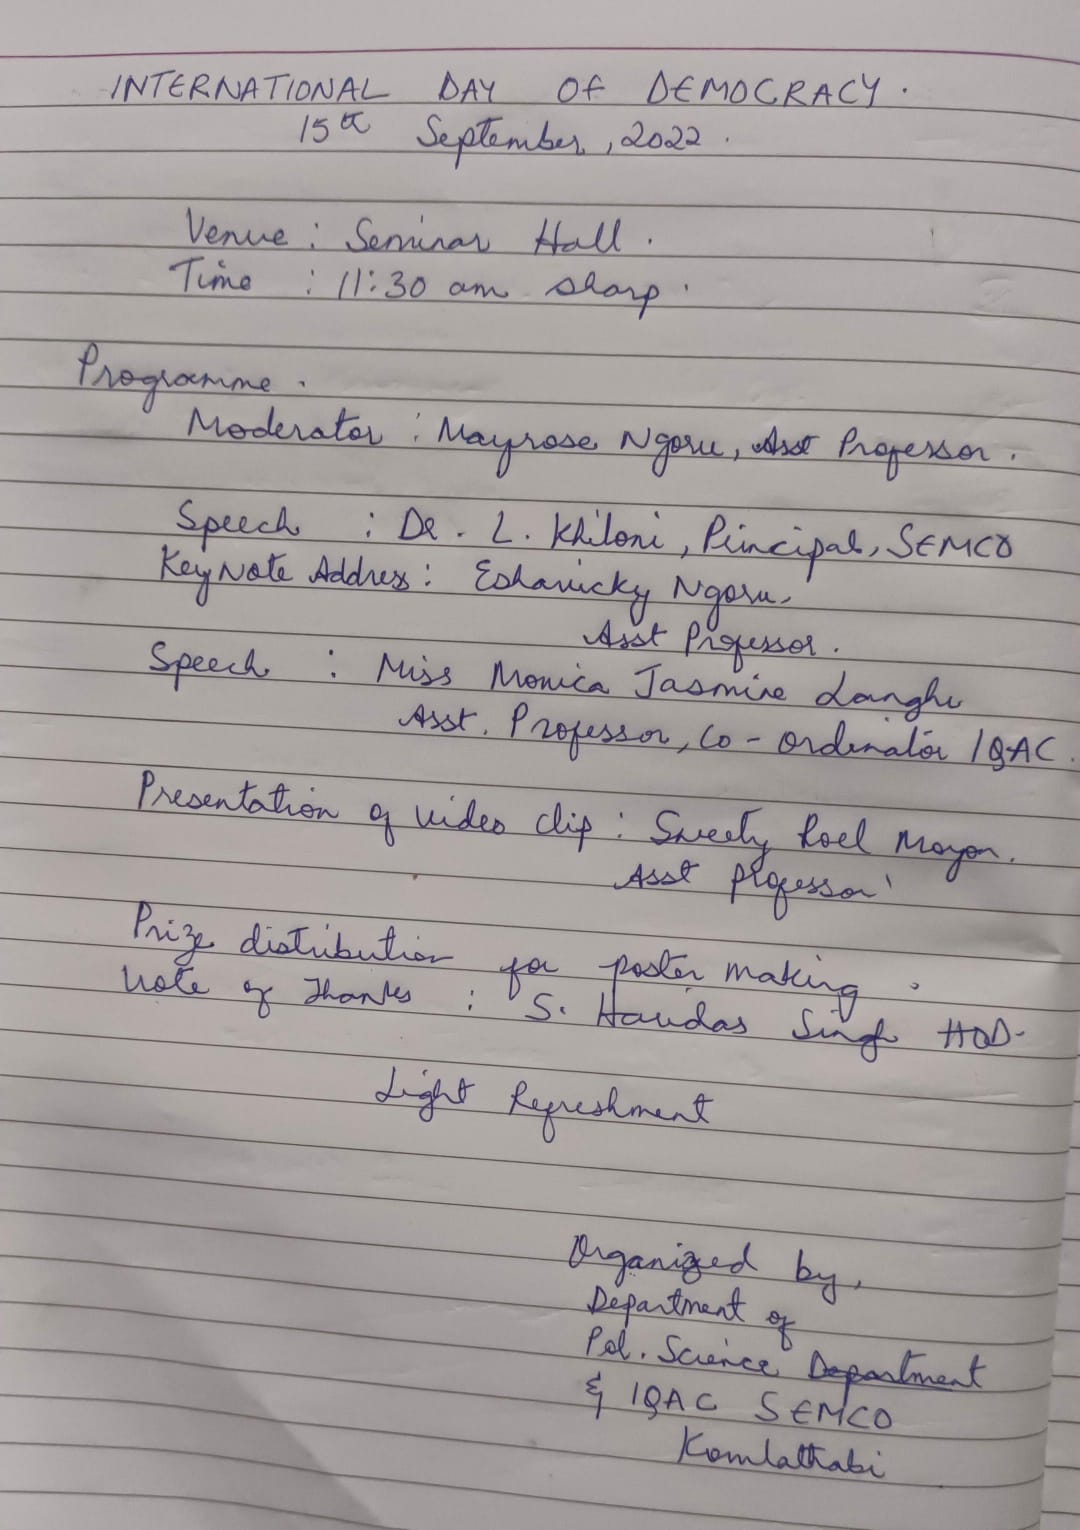 INTERNATIONAL DAY OF DEMOCRACY.
15th September, 2022.
Venue : Seminar Hall.
Time : 11:30 am sharp.
Programme.
Moderator : Mayrose Ngoru, Asst Professor.
Speech : Dr. L. Khiloni, Principal, SEMCO
KeyNote Address : Eshanicky Ngoru,
Asst Professor.
Speech : Miss Monica Jasmine Langhu
Asst. Professor, Co-ordinator IQAC.
Presentation of video clip : Sweety Roel Moyon.
Asst Professor
Prize distribution for poster making.
Note of Thanks : S. Haridas Singh HOD.
Light Refreshment
Organized by,
Department of
Pol. Science Department
& IQAC SEMCO
Komlathabi